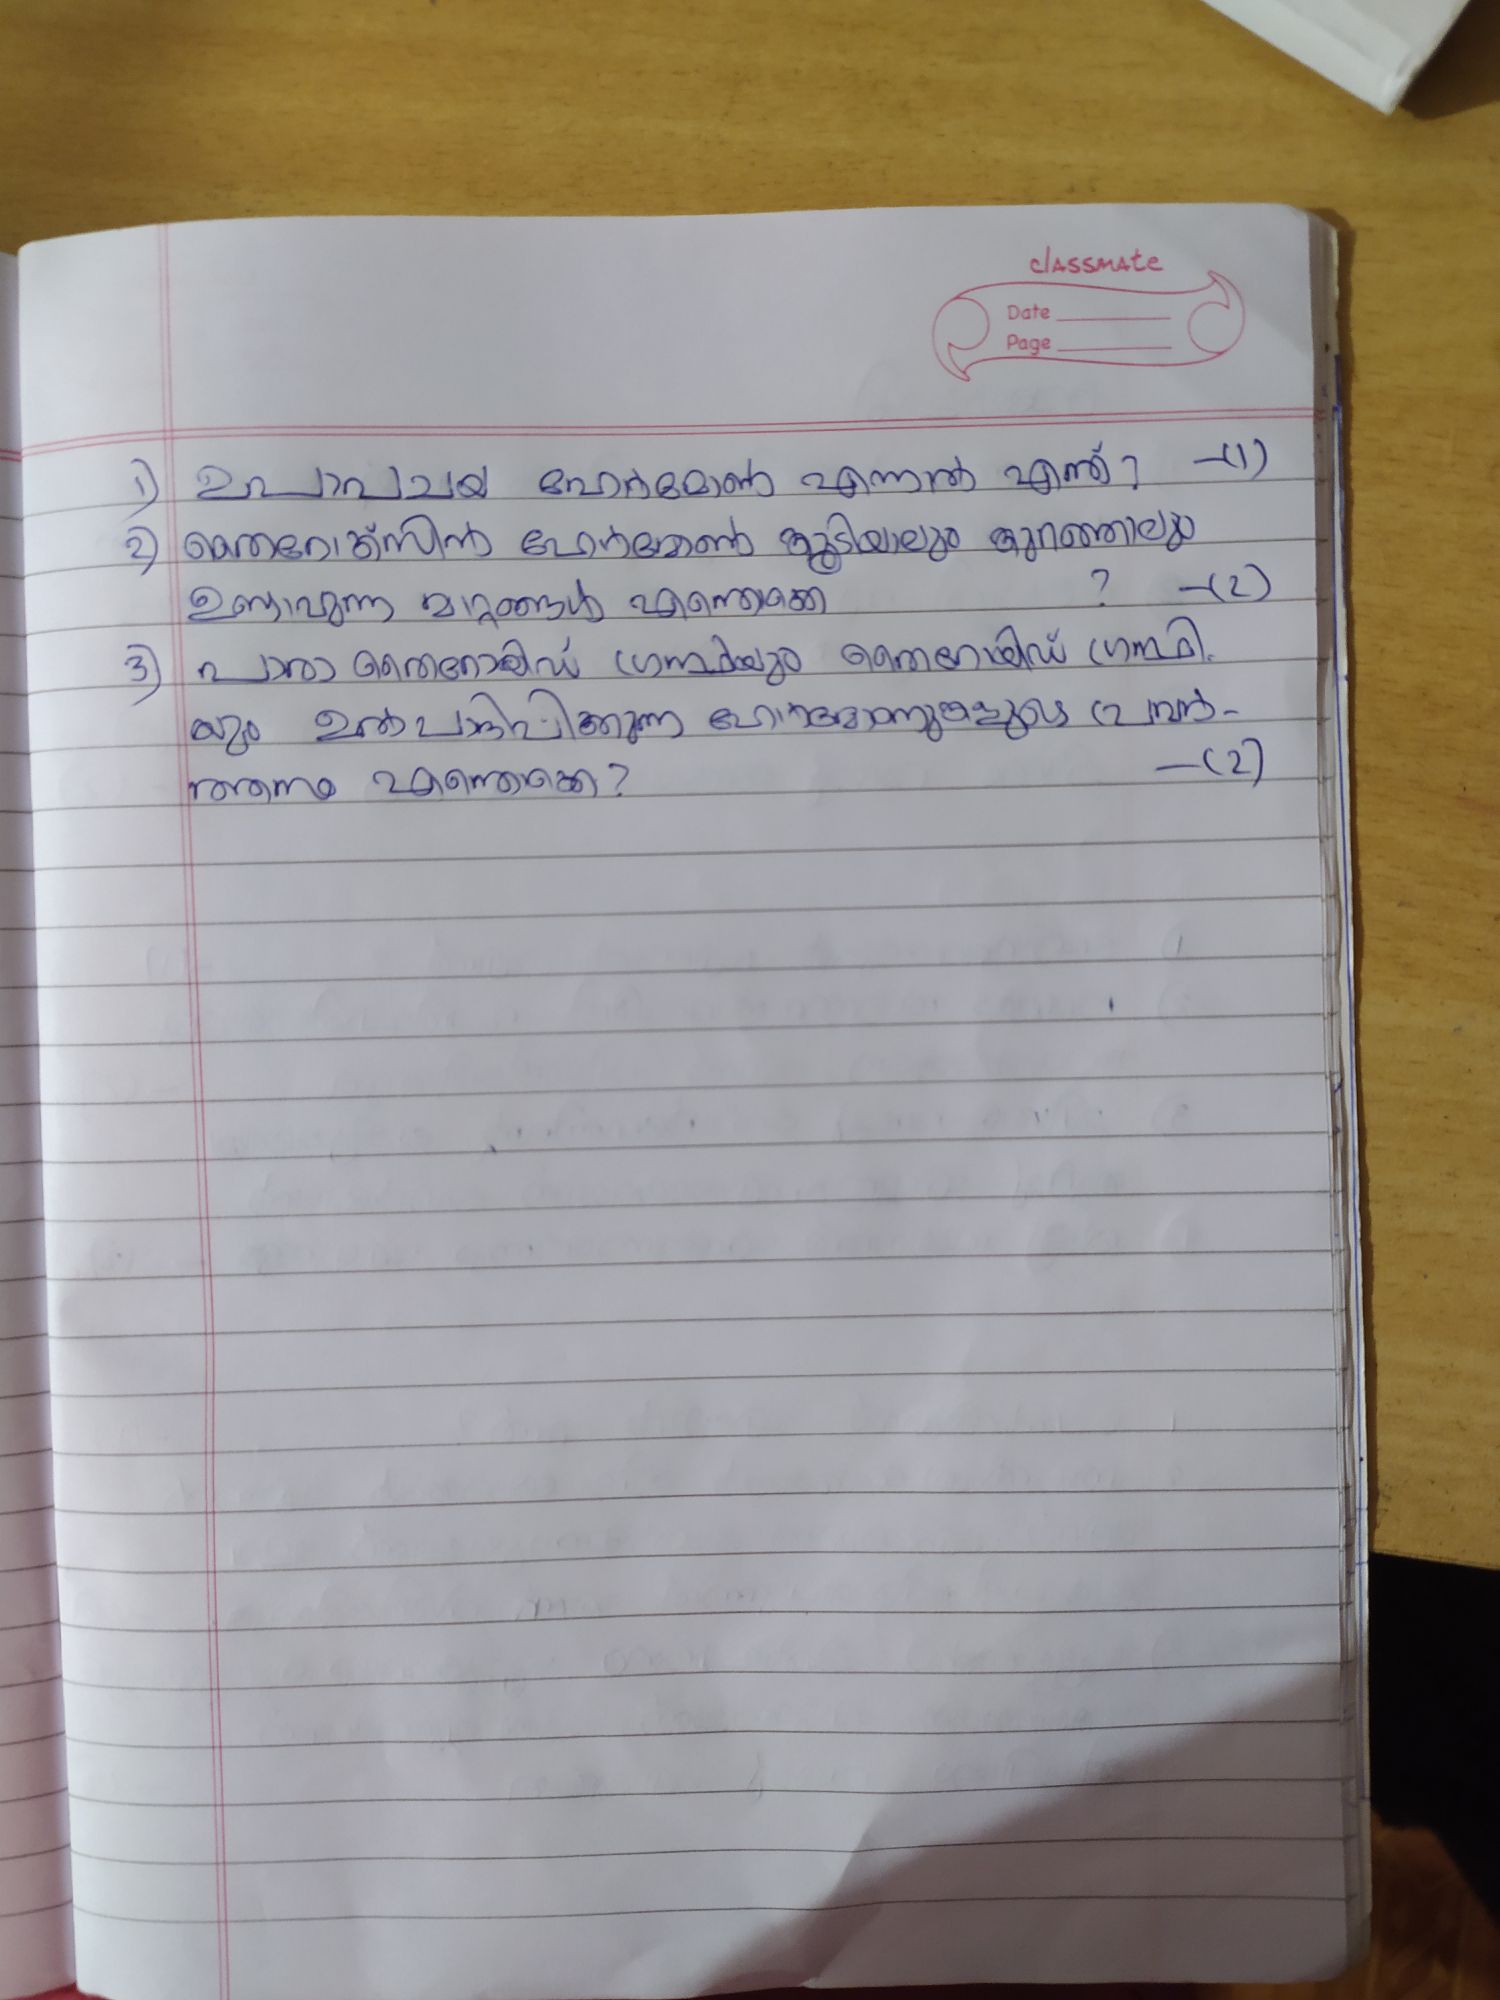 classmate
Date
Page
1) ഉപാപചയ ഹോർമോൺ എന്നാൽ എന്ത്? -(1)
2) തൈറോക്സിൻ ഹോർമോൺ കൂടിയാലും കുറഞ്ഞാലും
ഉണ്ടാവുന്ന മാറ്റങ്ങൾ എന്തൊക്കെ ? -(2)
3) പാരാ തൈറോയിഡ് ഗ്രന്ഥിയും തൈറോയിഡ് ഗ്രന്ഥി.
യും ഉൽപാദിപ്പിക്കുന്ന ഹോർമോണുകളുടെ പ്രവർ-
ത്തനം എന്തൊക്കെ? -(2)